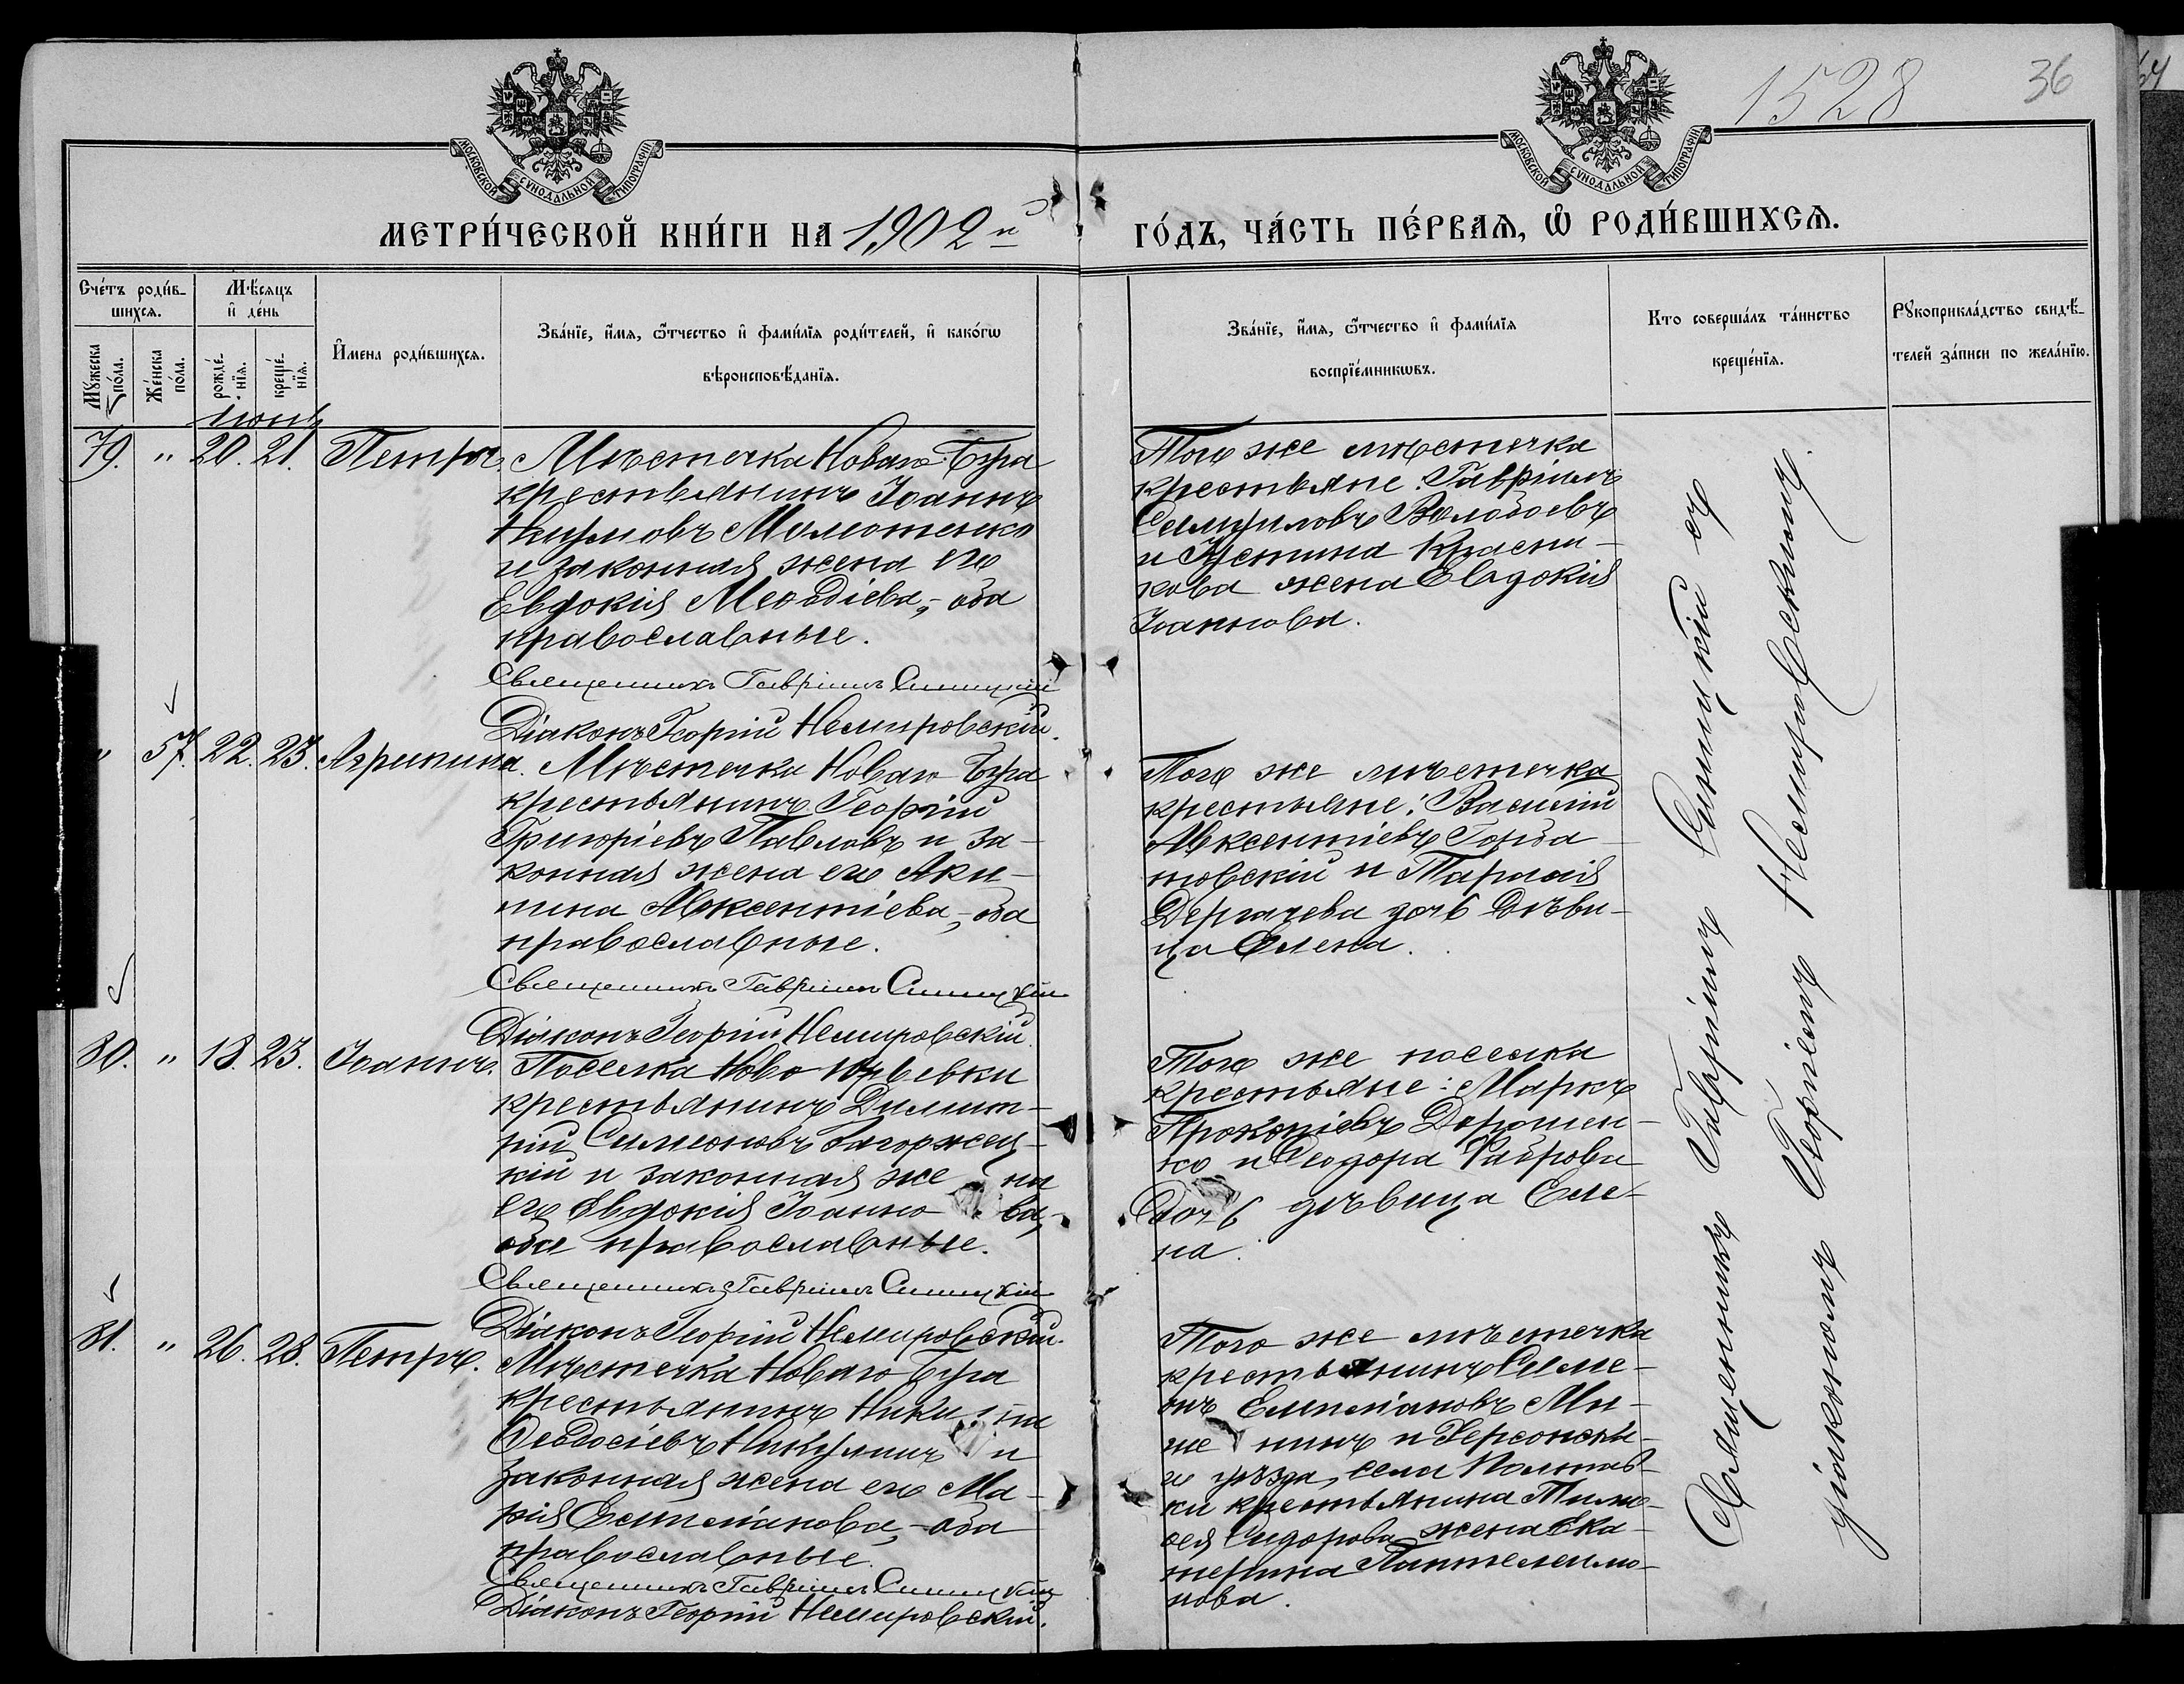 1528
36
МОСКОВСКОЙ СѴНОДАЛЬНОЙ ТИПОГРАФІИ
МОСКОВСКОЙ СѴНОДАЛЬНОЙ ТИПОГРАФІИ
МЕТРИ́ЧЕСКОЙ КНИ́ГИ НА 1902 й
ГО́ДЪ, ЧА́СТЬ ПЕ́РВАѦ, Ѡ҆ РОДИ́ВШИХСѦ.
Сче́тъ роди́в-
шихсѧ.
Мꙋ́жеска по́ла.
Же́нска по́ла.
Мѣ́сѧцъ
и҆ де́нь
рожде́-
нїѧ.
креще́-
нїѧ.
И҆мена роди́вшихсѧ.
Зва́нїе, и҆́мѧ, ѻ҆́тчество и҆ фами́лїѧ роди́телей, и҆ како́гѡ
вѣроисповѣ́данїѧ.
Зва́нїе, и҆́мѧ, ѻ҆́тчество и҆ фами́лїѧ
воспрїе́мникѡвъ.
Кто соверша́лъ та́инство
креще́нїѧ.
Рꙋкоприкла́дство свидѣ́-
телей за́писи по жела́нїю.
Іюнь
79. " 20. 21. Петръ.
Мѣстечка Новаго Буга
крестьянинъ Іоаннъ
Наумовъ
и законная жена его
Евдокія Меѳодіева, - оба
православные.
Священникъ Гавріилъ Синицкій
Діаконъ Георгій Немировскій.
Того же мѣстечка
крестьяне: Гавріилъ
Самуиловъ
и Устина Красни-
кова жена Евдокія
Іоаннова.
" 57. 22. 23. Агрипина.
Мѣстечка Новаго Буга
крестьянинъ Георгій
Григоріевъ Павловъ и за-
конная жена его Аки-
лина Авксентіева, - оба
православные.
Священникъ Гавріилъ Синицкій
Діаконъ Георгій Немировскій.
Того же мѣстечка
крестьяне: Василій
Авксентіевъ Горба-
новскій и Тарасія
Дергачева дочь дѣви-
ца Елена.
80. " 18. 23. Іоаннъ.
Поселка Ново-Юрьевки
крестьянинъ Димит-
рій Симеоновъ Загоржец-
кій и законная жена
его Евдокія Іоаннова,
оба православные.
Священникъ Гавріилъ Синицкій
Діаконъ Георгій Немировскій.
Того же поселка
крестьяне: Маркъ
Прокопіевъ Дорошен-
ко и Ѳеодора
дочь дѣвица Еле-
на.
81. " 26. 28. Петръ.
Мѣстечка Новаго Буга
крестьянинъ Никита
Ѳеодосіевъ Никулинъ и
законная жена его Ма-
рія Емиліанова, - оба
православные.
Священникъ Гавріилъ Синицкій
Діаконъ Георгій Немировскій.
Того же мѣстечка
крестьянинъ Симе-
онъ Емиліановъ Ми-
и Херсонска-
го уѣзда, села Полтав-
ки крестьянина Тимо-
ѳея Сидорова жена Ека-
терина Пантелеимо-
нова.
Священникъ Гавріилъ Синицкій съ
діакономъ Георгіемъ Немировскимъ.